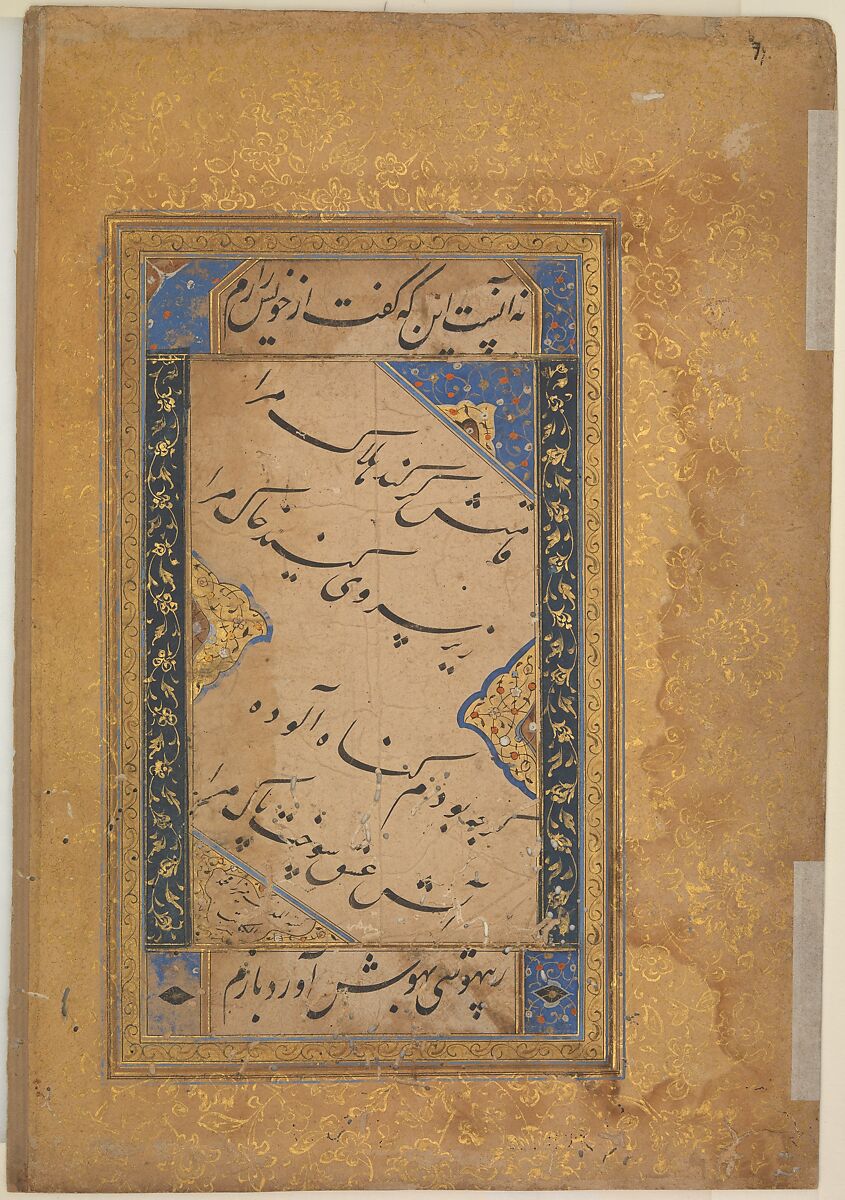 نه آنست این که گفت از خویش رازم
فامتش گر کند هلاک مرا
زیر پی روی کنید خاک مرا
گرچه بودم گناه آلوده
آتش عشق سوخت پاک مرا
ز بیهوشی بهوش آورد بازم